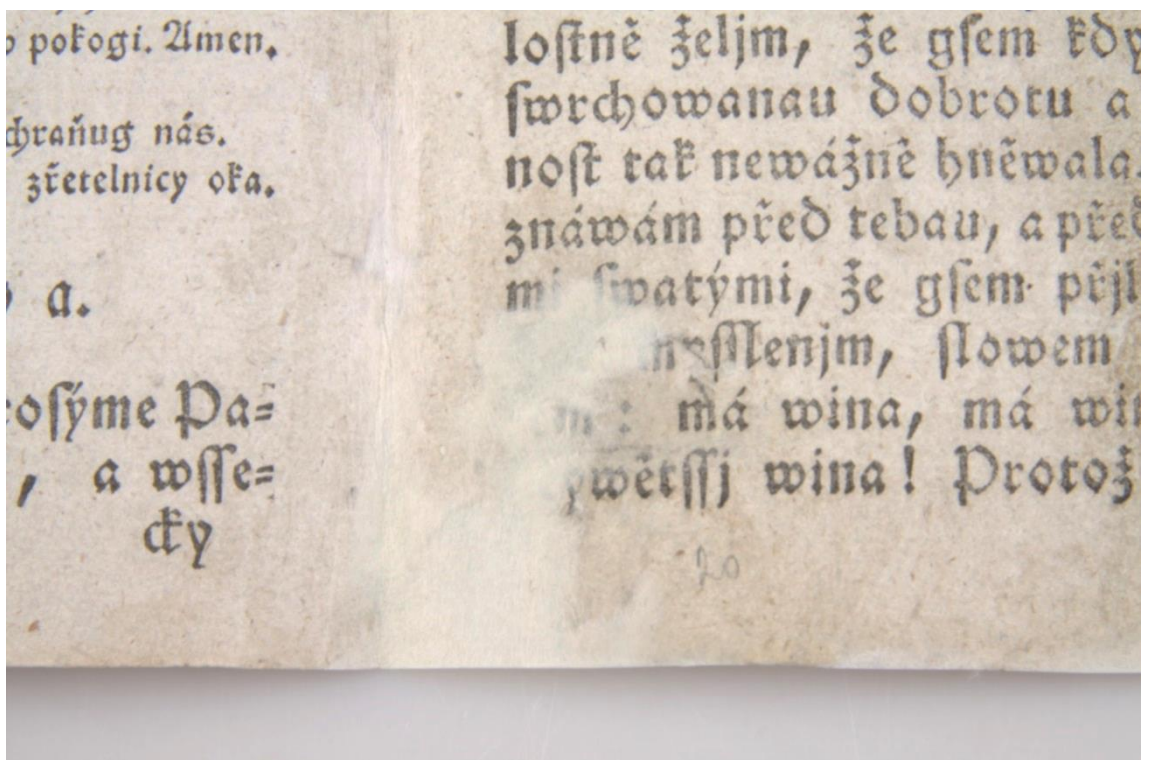 pokogi. Amen.
chraňug nás.
zřetelnicy oka.
a.
osýme Pa=
, a wsse=
cky
lostně željm, že gsem kdy
swrchowanau dobrotu a
nost tak newážně hněwala.
znáwám před tebau, a před
mi swatými, že gsem přjl
myslenjm, slowem
má wina, má win
ywětssj wina! Protož
20